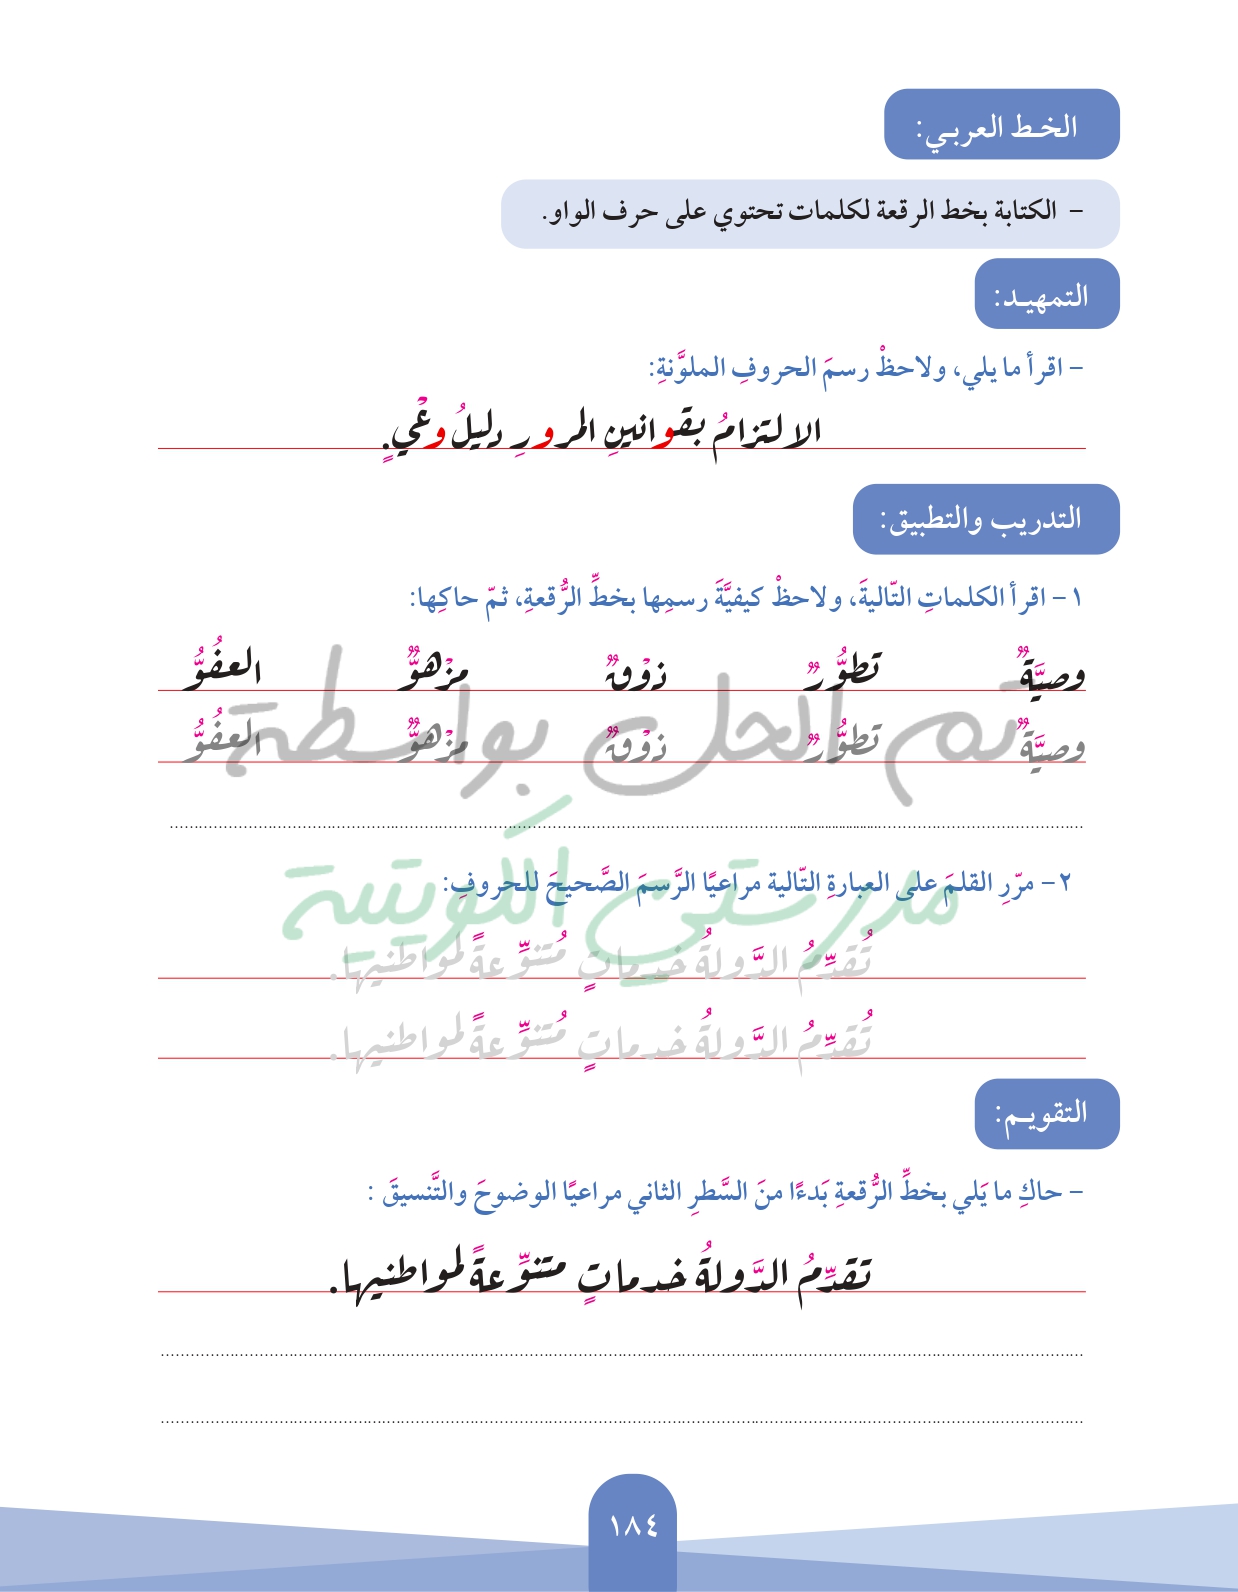 الخط العربي:
- الكتابة بخط الرقعة لكلمات تحتوي على حرف الواو.
التمهيد:
- اقرأ ما يلي، ولاحظْ رسمَ الحروفِ الملوَّنةِ:
الالتزامُ بقوانينِ المرورِ دليلُ وعْيٍ.
التدريب والتطبيق:
١- اقرأ الكلماتِ التّاليةَ، ولاحظْ كيفيَّةَ رسمِها بخطِّ الرُّقعةِ، ثمّ حاكِها:
وصيَّةٌ تطوُّرٌ ذوْقٌ مزْهوٌّ العفُوُّ
وصيَّةٌ تطوُّرٌ ذوْقٌ مزْهوٌّ العفُوُّ
تم الحل بواسطة
مدرستي الكويتية
٢- مرّرِ القلمَ على العبارةِ التّالية مراعيًا الرَّسمَ الصَّحيحَ للحروفِ:
تُقدِّمُ الدَّولةُ خدماتٍ مُتنوِّعةً لمواطنيها.
تُقدِّمُ الدَّولةُ خدماتٍ مُتنوِّعةً لمواطنيها.
التقويم:
- حاكِ ما يَلي بخطِّ الرُّقعةِ بَدءًا منَ السَّطرِ الثاني مراعيًا الوضوحَ والتَّنسيقَ :
تقدِّمُ الدَّولةُ خدماتٍ متنوِّعةً لمواطنيها.
١٨٤